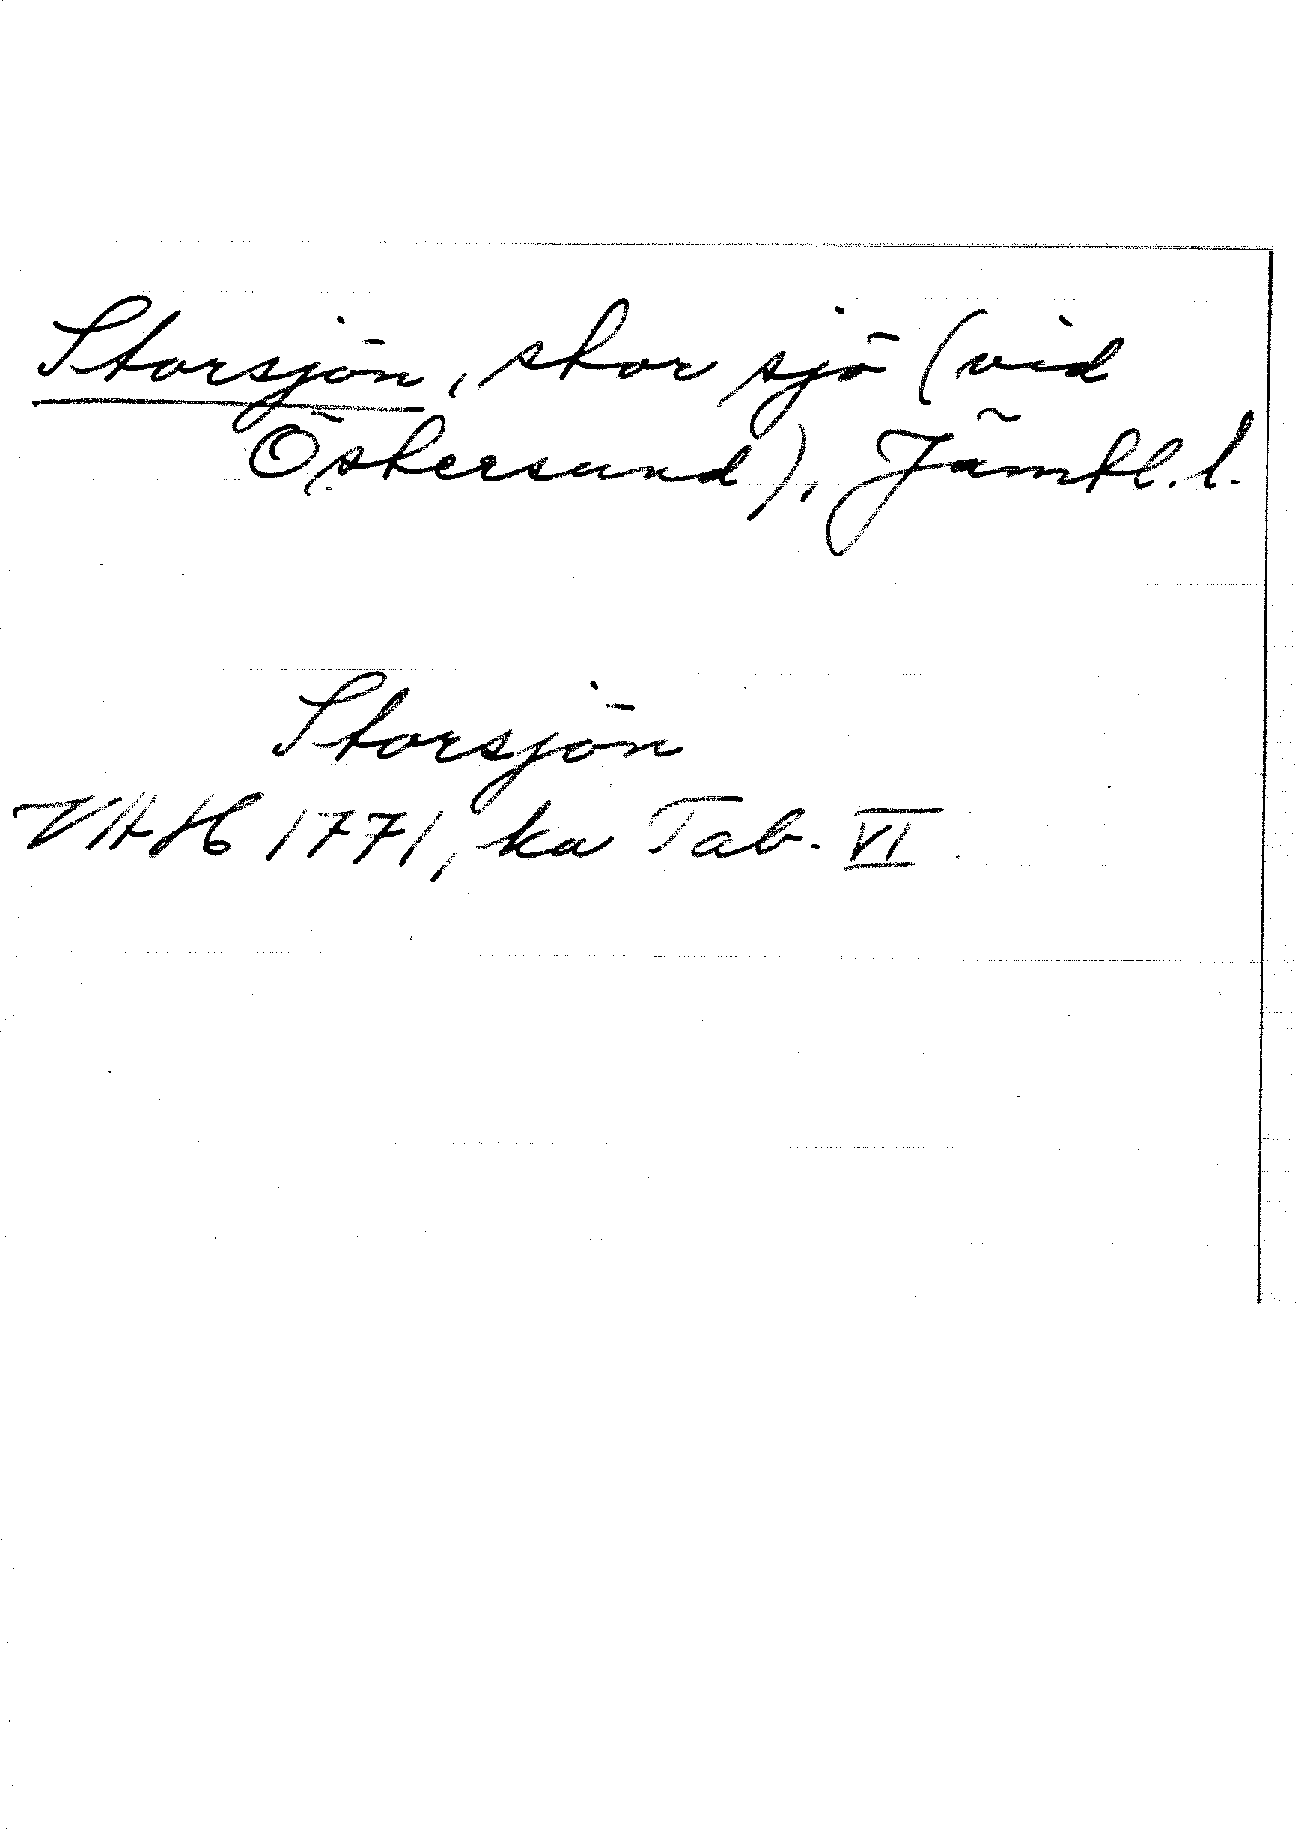 Storsjön, stor sjö (vid
Östersund), Jämtl. l.
Storsjön
VAH 1771, ka Tab. VI